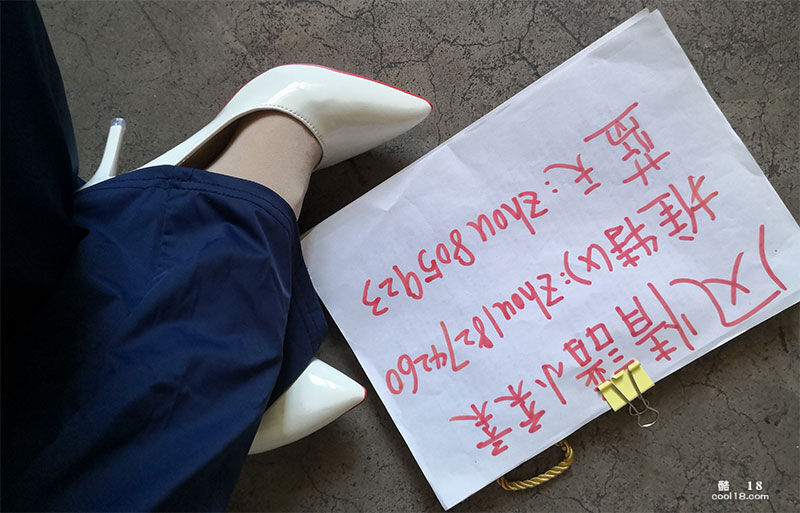 风情小柔柔
推特(x):Zhou18274260
蓝天:Zhou805923
酷 18
cool18.com